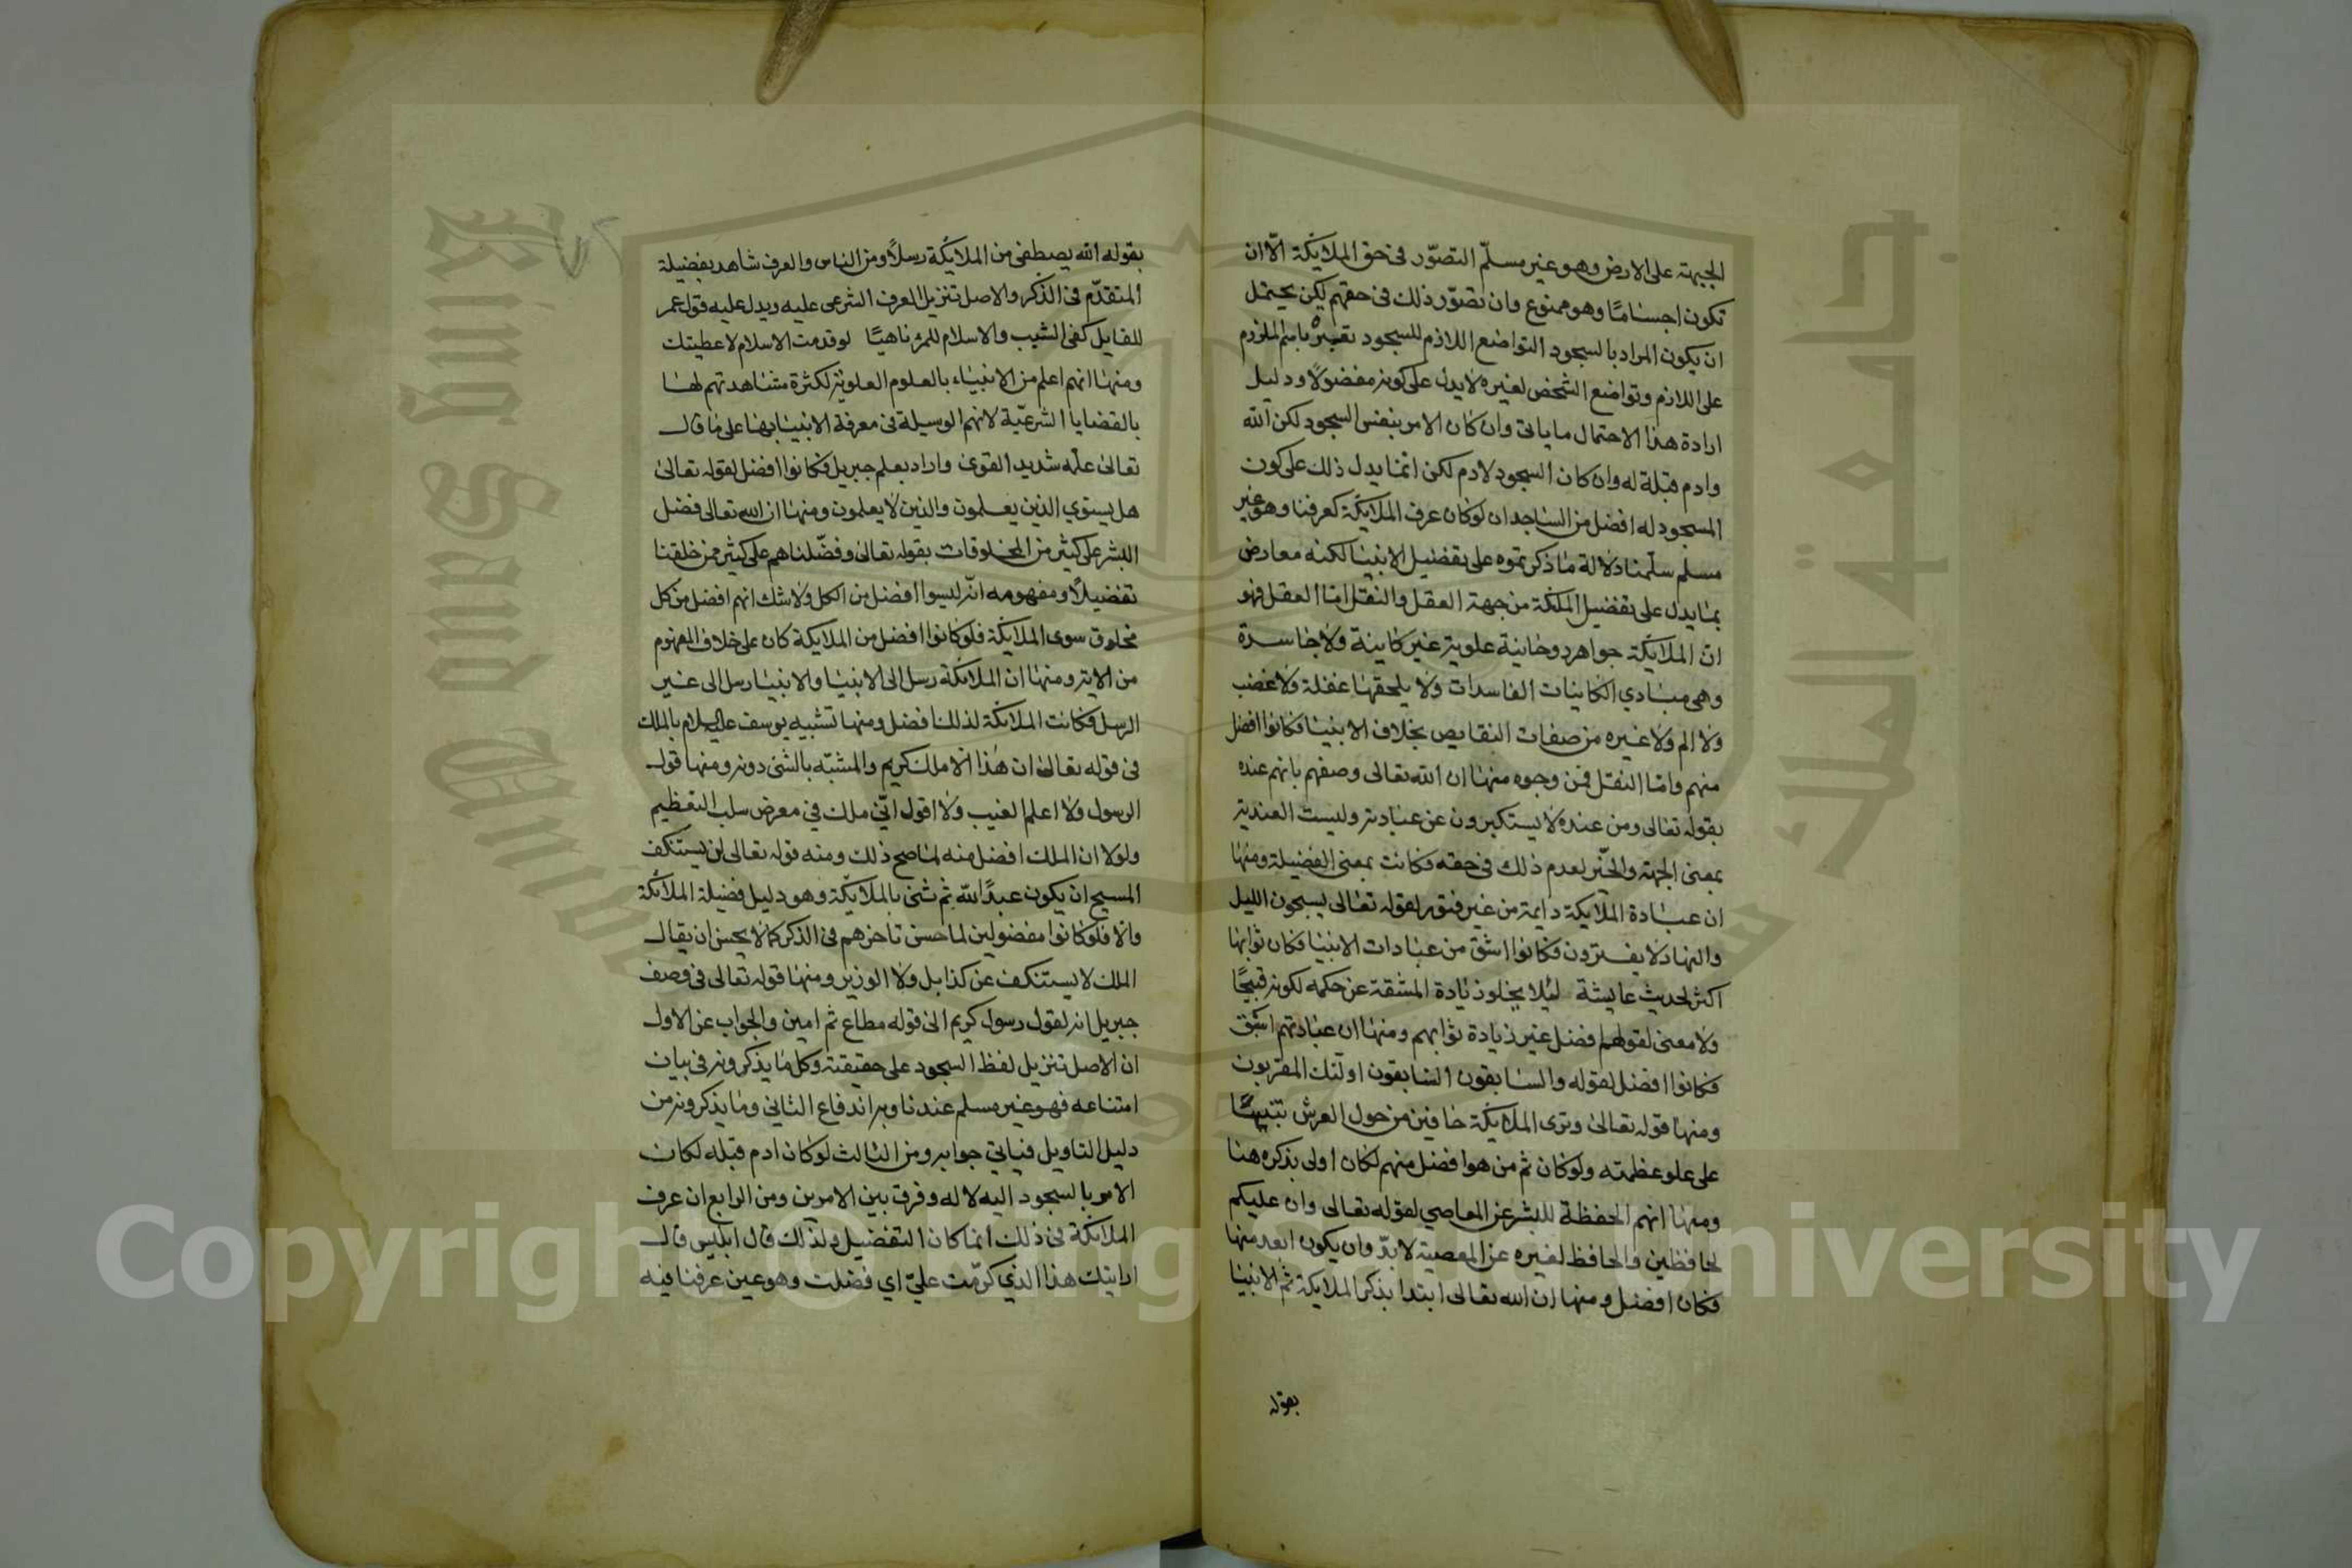 الجبهة على الارض وهو غير مسلّم التصوّر فى حق الملايكة الّا ان
تكون اجسامًا وهو ممنوع وان تصوّر ذلك فى حقهم لكن يحتمل
ان يكون المراد بالسجود التواضع اللازم للسجود تعبيره باسم الملزوم
على اللازم وتواضع الشخص لغيره لا يدل على كونه مفضولًا ودليل
ارادة هذا الاحتمال ما ياتى وان كان الامر بنفس السجود لكن الله
وادم قبلة له وان كان السجود لادم لكن انما يدل ذلك على كون
المسجود له افضل من الساجد ان لو كان عرف الملايكة كعرفنا وهو غير
مسلم سلّمنا دلالة ما ذكرتموه على تفضيل الانبيا لكنه معارض
بما يدل على تفضيل الملئكة من جهة العقل والنقل امّا العقل فهو
ان الملايكة جواهر روحانية علوية غير كاينة ولا فاسدة
وهى مبادي الكاينات الفاسدات ولا يلحقها غفلة ولا غضب
ولا الم ولا غيره من صفات النقايص بخلاف الانبيا فكانوا افضل
منهم وامّا النقل فمن وجوه منها ان الله تعالى وصفهم بانهم عنده
بقوله تعالى ومن عنده لا يستكبرون عن عبادته وليست العندية
بمعنى الجهة والحيّز لعدم ذلك فى حقه فكانت بمعنى الفضيلة ومنها
ان عبادة الملايكة دايمة من غير فتور لقوله تعالى يسبحون الليل
والنهار لا يفترون فكانوا اشق من عبادات الانبيا فكان ثوابها
اكثر لحديث عايشة لئلا يخلو زيادة المشقة عن حكمه لكونه قبيحًا
ولا معنى لقولهم افضل غير زيادة ثوابهم ومنها ان عبادتهم اسبق
فكانوا افضل لقوله والسابقون السابقون اولئك المقربون
ومنها قوله تعالى وترى الملايكة حافين من حول العرش تنبيهًا
على علو عظمته ولو كان ثم من هو افضل منهم لكان اولى بذكره هنا
ومنها انهم الحفظة للبشر عن المعاصي لقوله تعالى وان عليكم
لحافظين والحافظ لغيره عن المعصية لا بدّ وان يكون ابعد منها
فكان افضل ومنها ان الله تعالى ابتدا بذكر الملايكة ثم الانبيا
بقوله
بقوله الله يصطفى من الملايكة رسلًا ومن الناس والعرف شاهد بفضيلة
المتقدّم فى الذكر والاصل تنزيل العرف الشرعى عليه ويدل عليه قول عمر
للقايل كفى الشيب والاسلام للمرء ناهيًا لو قدمت الاسلام لاعطيتك
ومنها انهم اعلم من الانبياء بالعلوم العلوية لكثرة مشاهدتهم لها
بالقضايا الشرعيّة لانهم الوسيلة فى معرفة الانبيا بها على ما قال
تعالى علّمه شديد القوى واراد بعلم جبريل فكانوا افضل لقوله تعالى
هل يستوي الذين يعلمون والذين لا يعلمون ومنها ان الله تعالى فضل
البشر على كثير من المخلوقات بقوله تعالى وفضّلناهم على كثير ممن خلقنا
تفضيلًا ومفهومه انّه ليسوا افضل من الكل ولا شك انهم افضل من كل
مخلوق سوى الملايكة فلو كانوا افضل من الملايكة كان على خلاف المفهوم
من الاية ومنها ان الملايكة رسل الى الانبيا والانبيا رسل الى غير
الرسل فكانت الملايكة لذلك افضل ومنها تشبيه يوسف عليه السلام بالملك
فى قوله تعالى ان هذا الّا ملك كريم والمشبّه بالشئ دونه ومنها قول
الرسول ولا اعلم الغيب ولا اقول انّي ملك في معرض سلب التعظيم
ولولا ان الملك افضل منه لما صح ذلك ومنه قوله تعالى لن يستنكف
المسيح ان يكون عبدًا لله ثم ثنى بالملايكة وهو دليل فضيلة الملائكة
والا فلو كانوا مفضولين لما حسن تاخرهم فى الذكر كما لا يحسن ان يقال
الملك لا يستنكف عن كذا بل ولا الوزير ومنها قوله تعالى فى وصف
جبريل انه لقول رسول كريم الى قوله مطاع ثم امين والجواب عن الاول
ان الاصل تنزيل لفظ السجود على حقيقته وكل ما يذكرونه فى بيان
امتناعه فهو غير مسلم عندنا وبه اندفاع الثاني وما يذكرونه من
دليل التاويل فياتي جوابه ومن الثالث لو كان ادم قبله لكان
الامر بالسجود اليه لا له وفرق بين الامرين ومن الرابع ان عرف
الملائكة فى ذلك انما كان التفضيل ولذلك قال ابليس قال
ارايتك هذا الذي كرّمت عليّ اي فضلت وهو عين عرفنا فيه
Copyright © King Saud University
جامعة الملك سعود
King Saud University
1957